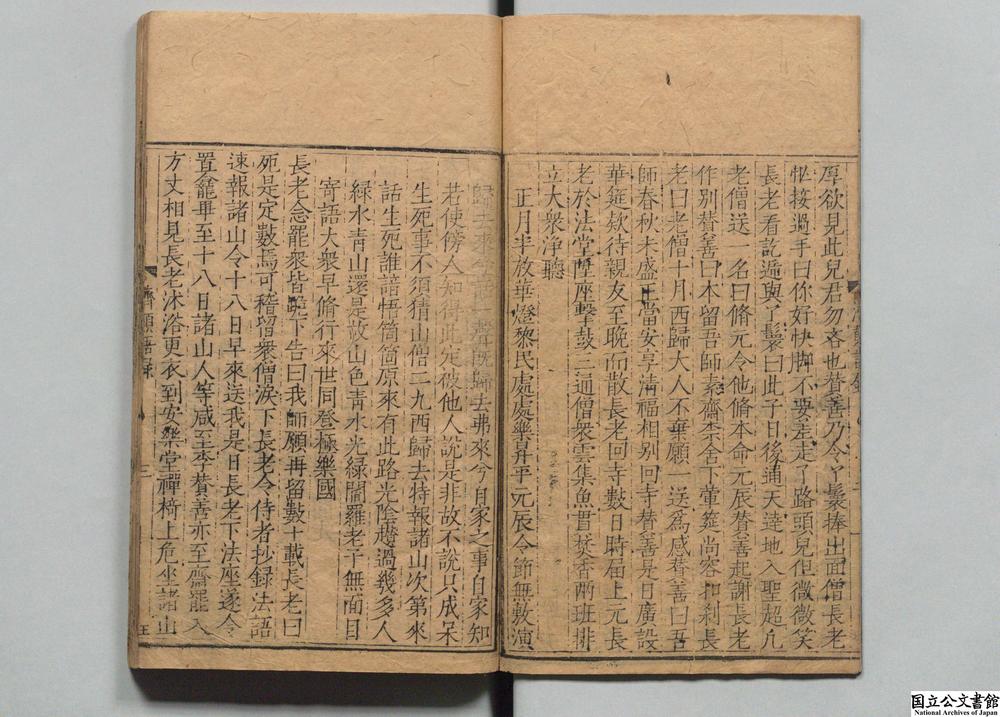 厚欲見此兒君勿吝也賛善乃令丫鬟捧出面僧長老
忙接過手曰你好快脚不要差走了路頭兒但微微笑
長老看訖遞與了鬟曰此子日後通天達地入聖超凢
老僧送一名曰脩元令他脩本命元辰賛善起謝長老
作別賛善曰本留吾師素齋柰舍下葷筵尚容扣刹長
老曰老僧十月西歸大人不棄願一送爲感賛善曰吾
師春秋未盛正當安享清福相别回寺賛善是日廣設
華筵欵待親友至晚而散長老回寺數日時届上元長
老於法堂陞座擊鼓三通僧衆雲集魚貫焚香兩班排
立大衆淨聽
正月半放華燈黎民處處樂昇平元辰令節無敷演
歸去來兮
聲旣歸去弗來兮自家之事自家知
若使傍人知得此定被他人說是非故不說只成呆
生死事不須猜山僧二九西歸去特報諸山次第來
話生死誰諳悟箇箇原來有此路光陰趲過幾多人
綠水青山還是故山色青水光緑閻羅老子無面目
寄語大衆早脩行來世同登極樂國
長老念罷衆皆跪下告曰我師願再留數十載長老曰
死是定數焉可稽留衆僧淚下長老令侍者抄録法語
速報諸山令十八日早來送我是日長老下法座遂令
置龕畢至十八日諸山人等咸至李賛善亦至齋罷入
方丈相見長老沐浴更衣到安樂堂禪椅上危坐諸山
濟顛語録
三
五
国立公文書館
National Archives of Japan